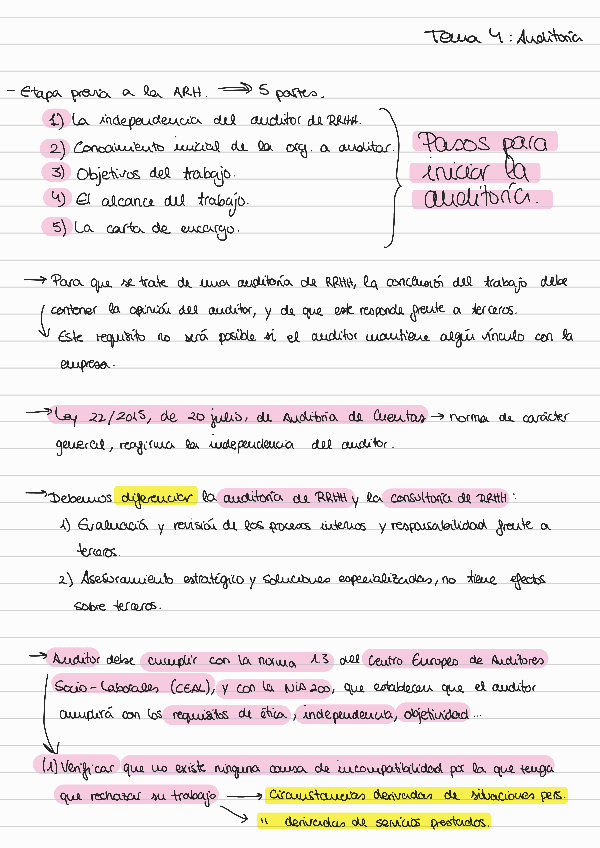 Tema 4: Auditoría
- Etapa previa a la ARH. ⟹ 5 partes.
1) La independencia del auditor de RRHH.
2) Conocimiento inicial de la org. a auditar.
3) Objetivos del trabajo.
4) El alcance del trabajo.
5) La carta de encargo.
Pasos para
iniciar la
auditoría.
→ Para que se trate de una auditoría de RRHH, la conclusión del trabajo debe
contener la opinión del auditor, y de que este responde frente a terceros.
↳ Este requisito no será posible si el auditor mantiene algún vínculo con la
empresa.
→ Ley 22/2015, de 20 julio, de Auditoría de Cuentas → norma de carácter
general, reafirma la independencia del auditor.
→ Debemos diferenciar la auditoría de RRHH y la consultoría de RRHH:
1) Evaluación y revisión de los procesos internos y responsabilidad frente a
terceros.
2) Asesoramiento estratégico y soluciones especializadas, no tiene efectos
sobre terceros.
→ Auditor debe cumplir con la norma 1.3 del Centro Europeo de Auditores
Socio-Laborales (CEAL), y con la NIA 200, que establecen que el auditor
cumplirá con los requisitos de ética, independencia, objetividad...
(1) Verificar que no existe ninguna causa de incompatibilidad por la que tenga
que rechazar su trabajo → Circunstancias derivadas de situaciones pers.
→ " derivadas de servicios prestados.